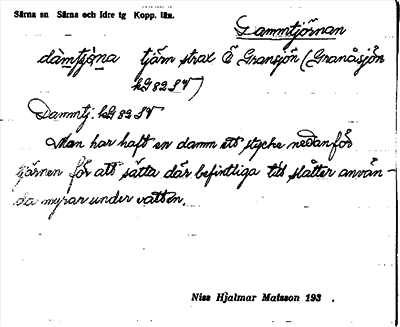 Särna sn Särna och Idre tg Kopp. län.
Dammtjörnan
dàm̀tjø̀ṇa tjärn strax Ö Gransjön (Granåsjön
kG 82 SV)
Dammtj. kG 82 SV
Man har haft en damm ett stycke nedanför
tjärnen för att sätta där befintliga till slåtter använ-
da myrar under vatten.
Niss Hjalmar Matsson 193 .